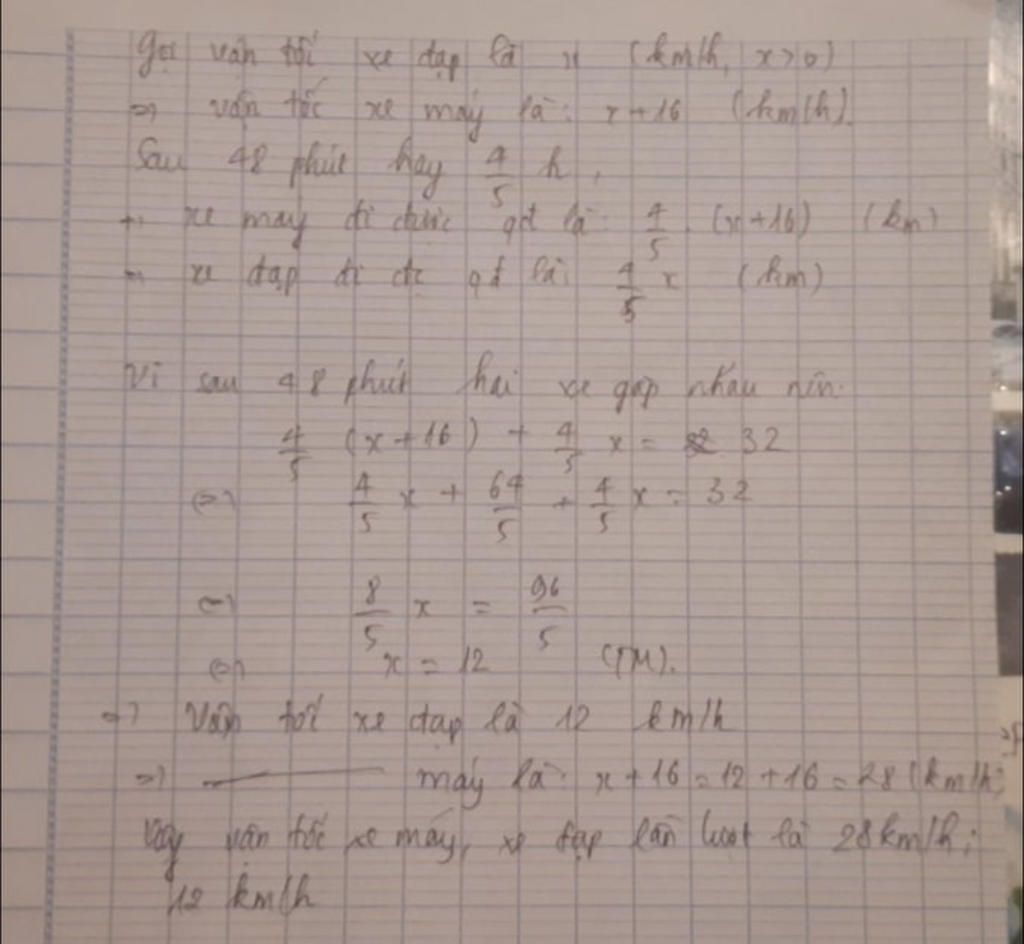 Gọi vận tốc xe đạp là x (km/h, x>0)
=> vận tốc xe máy là: x+16 (km/h).
Sau 48 phút hay 4/5 h,
+) xe máy đi được qđ là: 4/5 . (x+16) (km)
+) xe đạp đi đc qđ là: 4/5 x (km)
Vì sau 48 phút hai xe gặp nhau nên:
4/5 (x+16) + 4/5 x = 32
<=> 4/5 x + 64/5 + 4/5 x = 32
<=> 8/5 x = 96/5
<=> x = 12 (TM).
=> Vận tốc xe đạp là 12 km/h
=> ——— máy là: x+16 = 12+16 = 28 (km/h)
Vậy vận tốc xe máy, xe đạp lần lượt là 28km/h;
12 km/h